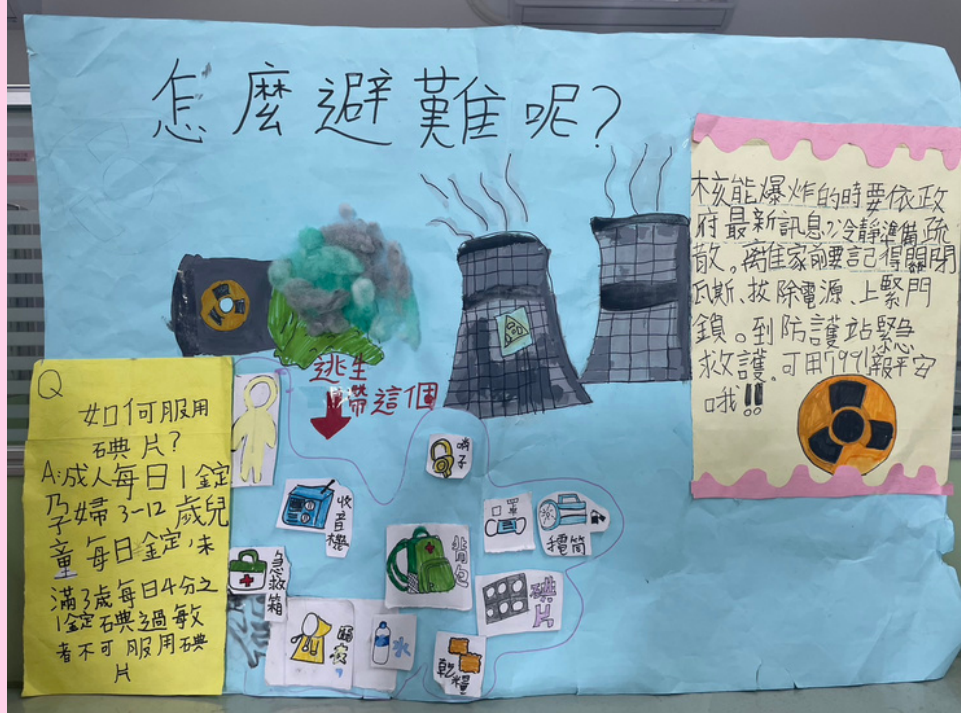 怎麼避難呢?
核能爆炸的時要依政
府最新訊息,冷靜準備疏
散。離家前要記得關閉
瓦斯、拔除電源、上緊門
鎖。到防護站緊急
救護。可用1991報平安
哦!!
逃生
帶這個
Q
如何服用
碘片?
A:成人每日1錠
孕婦3-12歲兒
童每日 錠,未
滿3歲每日4分之
1錠碘過敏
者不可服用碘
片
哨子
收音機
口罩
電筒
背包
急救箱
碘片
雨衣
水
乾糧